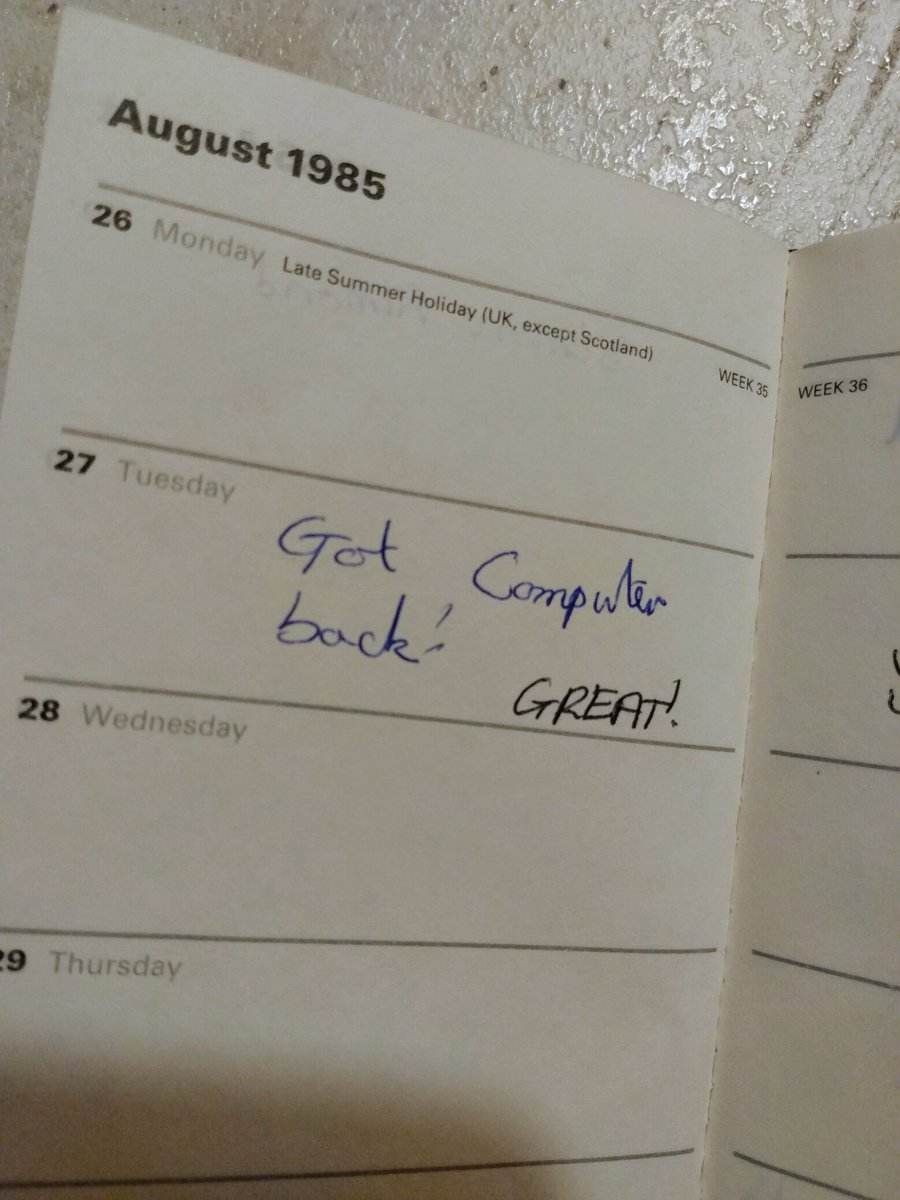 August 1985
26 Monday Late Summer Holiday (UK, except Scotland)
WEEK 35
27 Tuesday
Got Computer
back!
GREAT!
28 Wednesday
29 Thursday
WEEK 36